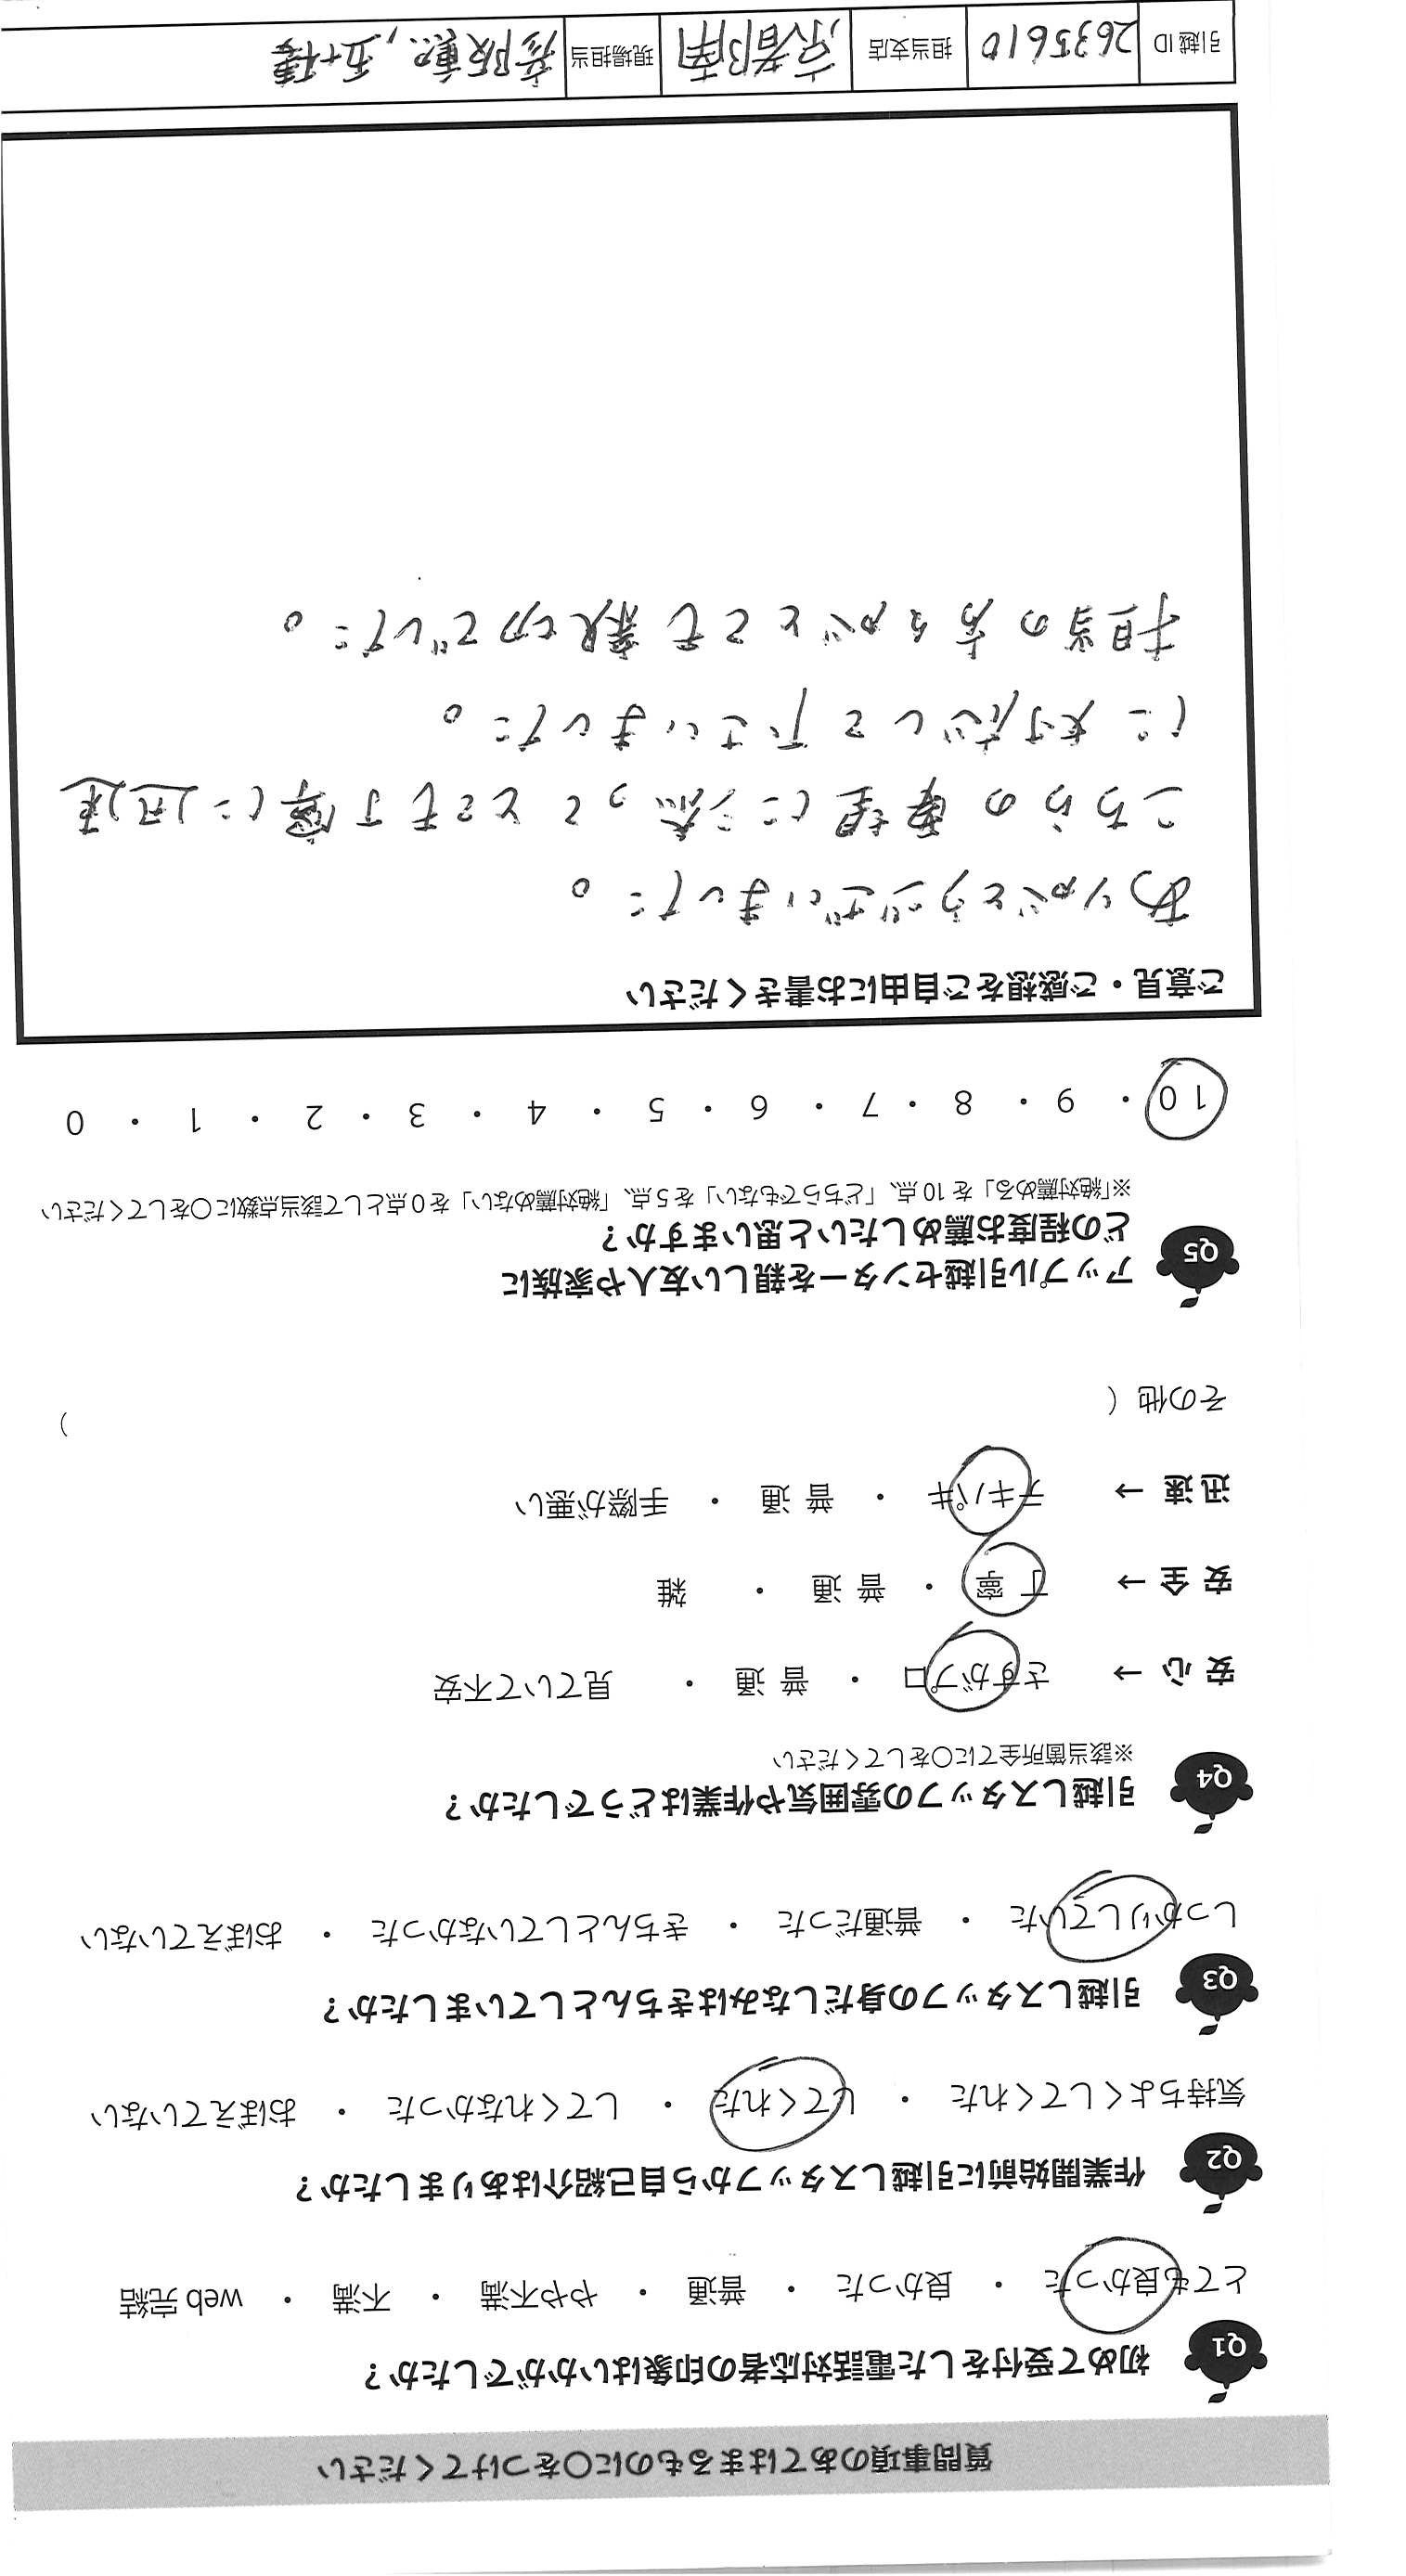 質問事項のあてはまるものに〇をつけてください
Q1 初めて受付をした電話対応者の印象はいかがでしたか？
とても良かった ・ 良かった ・ 普通 ・ やや不満 ・ 不満 ・ web 完結
Q2 作業開始前に引越しスタッフから自己紹介はありましたか？
気持ちよくしてくれた ・ してくれた ・ してくれなかった ・ おぼえていない
Q3 引越しスタッフの身だしなみはきちんとしていましたか？
しっかりしていた ・ 普通だった ・ きちんとしていなかった ・ おぼえていない
Q4 引越しスタッフの雰囲気や作業はどうでしたか？
※該当箇所全てに〇をしてください
安 心 → さすがプロ ・ 普 通 ・ 見ていて不安
安 全 → 丁 寧 ・ 普 通 ・ 雑
迅 速 → テキパキ ・ 普 通 ・ 手際が悪い
その他（ ）
Q5 アップル引越センターを親しい友人や家族に
どの程度お薦めしたいと思いますか？
※「絶対薦める」を 10 点、「どちらでもない」を 5 点、「絶対薦めない」を 0 点として該当点数に〇をしてください
10 ・ 9 ・ 8 ・ 7 ・ 6 ・ 5 ・ 4 ・ 3 ・ 2 ・ 1 ・ 0
ご意見・ご感想をご自由にお書きください
ありがとうございました。
こちらの要望に添ってとても丁寧に迅速
に対応して下さいました。
担当の方々がとても親切でした。
引越 ID 2635610 担当支店 京都南 現場担当